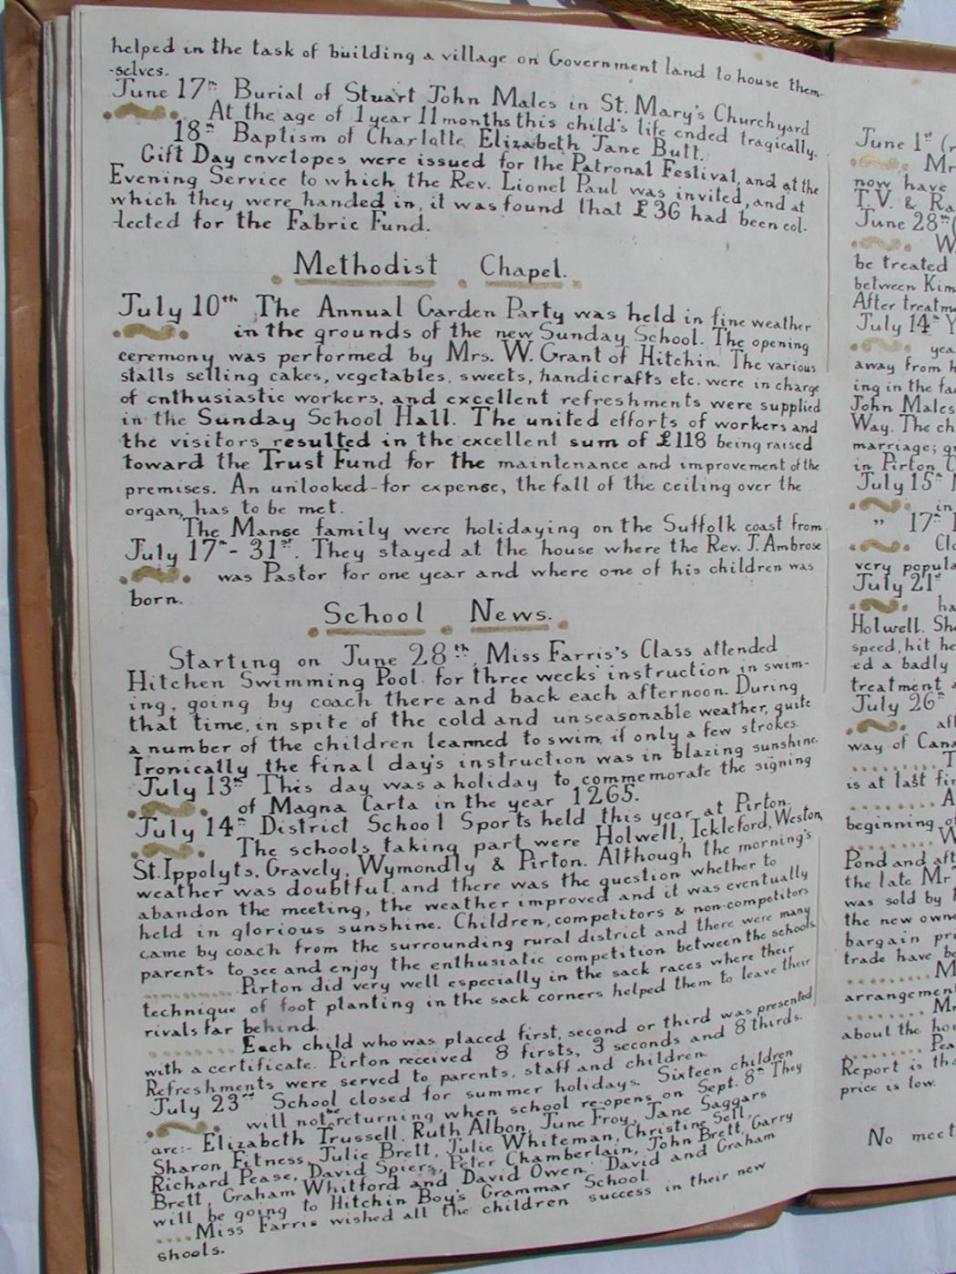 helped in the task of building a village on Government land to house them-
-selves.
June 17th Burial of Stuart John Males in St. Mary's Churchyard
At the age of 1 year 11 months this child's life ended tragically.
18th Baptism of Charlotte Elizabeth Jane Butt.
Gift Day envelopes were issued for the Patronal Festival, and at the
Evening Service to which the Rev. Lionel Paul was invited, and at
which they were handed in, it was found that £36 had been col-
-lected for the Fabric Fund.
Methodist Chapel.
July 10th The Annual Garden Party was held in fine weather
in the grounds of the new Sunday School. The opening
ceremony was performed by Mrs. W. Grant of Hitchin. The various
stalls selling cakes, vegetables, sweets, handicrafts etc. were in charge
of enthusiastic workers, and excellent refreshments were supplied
in the Sunday School Hall. The united efforts of workers and
the visitors resulted in the excellent sum of £118 being raised
toward the Trust Fund for the maintenance and improvement of the
premises. An unlooked-for expense, the fall of the ceiling over the
organ, has to be met.
The Manse family were holidaying on the Suffolk coast from
July 17th - 31st. They stayed at the house where the Rev. J. Ambrose
was Pastor for one year and where one of his children was
born.
School News.
Starting on June 28th, Miss Farris's Class attended
Hitchen Swimming Pool for three weeks' instruction in swim-
ing, going by coach there and back each afternoon. During
that time, in spite of the cold and unseasonable weather, quite
a number of the children learned to swim, if only a few strokes.
Ironically the final day's instruction was in blazing sunshine.
July 13th This day was a holiday to commemorate the signing
of Magna Carta in the year 1265.
July 14th District School Sports held this year at Pirton.
The schools taking part were Holwell, Ickleford, Weston,
St. Ippolyts, Gravely, Wymondly & Pirton. Although the morning's
weather was doubtful and there was the question whether to
abandon the meeting, the weather improved and it was eventually
held in glorious sunshine. Children, competitors & non-competitors
came by coach from the surrounding rural district and there were many
parents to see and enjoy the enthusiatic competition between the schools.
Pirton did very well especially in the sack races where their
technique of foot planting in the sack corners helped them to leave their
rivals far behind.
Each child who was placed first, second or third was presented
with a certificate. Pirton received 8 firsts, 3 seconds and 8 thirds.
Refreshments were served to parents, staff and children.
July 23rd School closed for summer holidays. Sixteen children
will not be returning when school re-opens on Sept. 8th They
are:- Elizabeth Trussell, Ruth Albon, June Froy, Jane Saggars
Sharon Fitness, Julie Brett, Julie Whiteman, Christine Sell,
Richard Pease, David Spiers, Peter Chamberlain, John Brett, Garry
Brett, Graham Whitford and David Owen. David and Graham
will be going to Hitchin Boy's Grammar School.
Miss Farris wished all the children success in their new
shools.
June 1st
Mr
now have
T.V. & Ra
June 28th
W
be treated
between Kim
After treatme
July 14th Y
yea
away from h
ing in the fa
John Males
Way. The ch
marriage; g
in Pirton C
July 15th
in
" 17th
Clo
very popula
July 21st
ha
Holwell. She
speed, hit he
ed a badly
treatment
July 26th
aft
way of Cana
T
is at last fin
A
beginning of
W
Pond and aft
the late Mr
was sold by
the new own
bargain pri
trade have be
M
arrangement
Mr
about the hou
Pea
Report is tha
price is low.
No meet